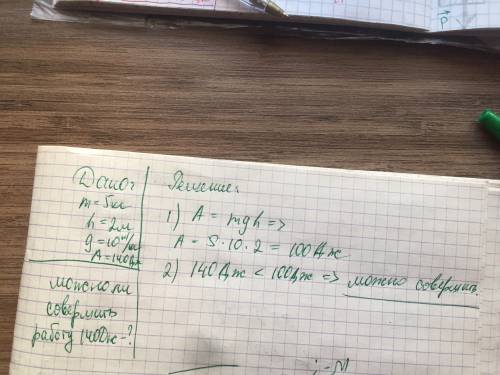 Дано:
m=5кг
h=2м
g=10м/кг
A=140Дж
можно ли
совершить
работу 140Дж-?
Решение:
1) A = mgh =>
A = 5·10·2 = 100Дж
2) 140Дж < 100Дж => можно совершить.
P